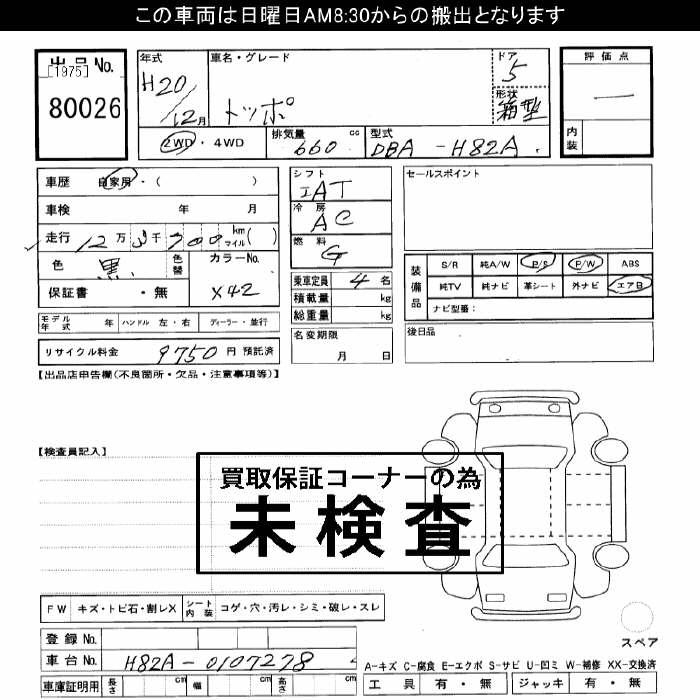 この車両は日曜日AM8:30からの搬出となります
出品No.
[1975]
80026
年式
H20
/12月
車名・グレード
トッポ
ドア
5
形状
箱型
評価点
—
内装
2WD・4WD
排気量
660
cc
型式
DBA-H82A
車歴 自家用・( )
車検 年 月
走行 12万3千700km マイル( )
色 黒
色替
カラーNo.
X42
保証書 ・無
シフト
IAT
冷房
AC
燃料
G
乗車定員 4名
積載量 kg
総重量 kg
セールスポイント
装備品
S/R 純A/W P/S P/W ABS
純TV 純ナビ 革シート 外ナビ エアB
ナビ型番:
モデル年式 年 ハンドル 左・右 ディーラー・並行
リサイクル料金 9750円 預託済
名変期限
月 日
後日品
【出品店申告欄(不良個所・欠品・注意事項等)】
【検査員記入】
買取保証コーナーの為
未検査
FW キズ・トビ石・割レX シート内装 コゲ・穴・汚レ・シミ・破レ・スレ
スペア
登録No.
車台No. H82A-0107278
車庫証明用 長さ cm 幅 cm 高さ cm
A-キズ C-腐食 E-エクボ S-サビ U-凹ミ W-補修 XX-交換済
工具 有・無 ジャッキ 有・無